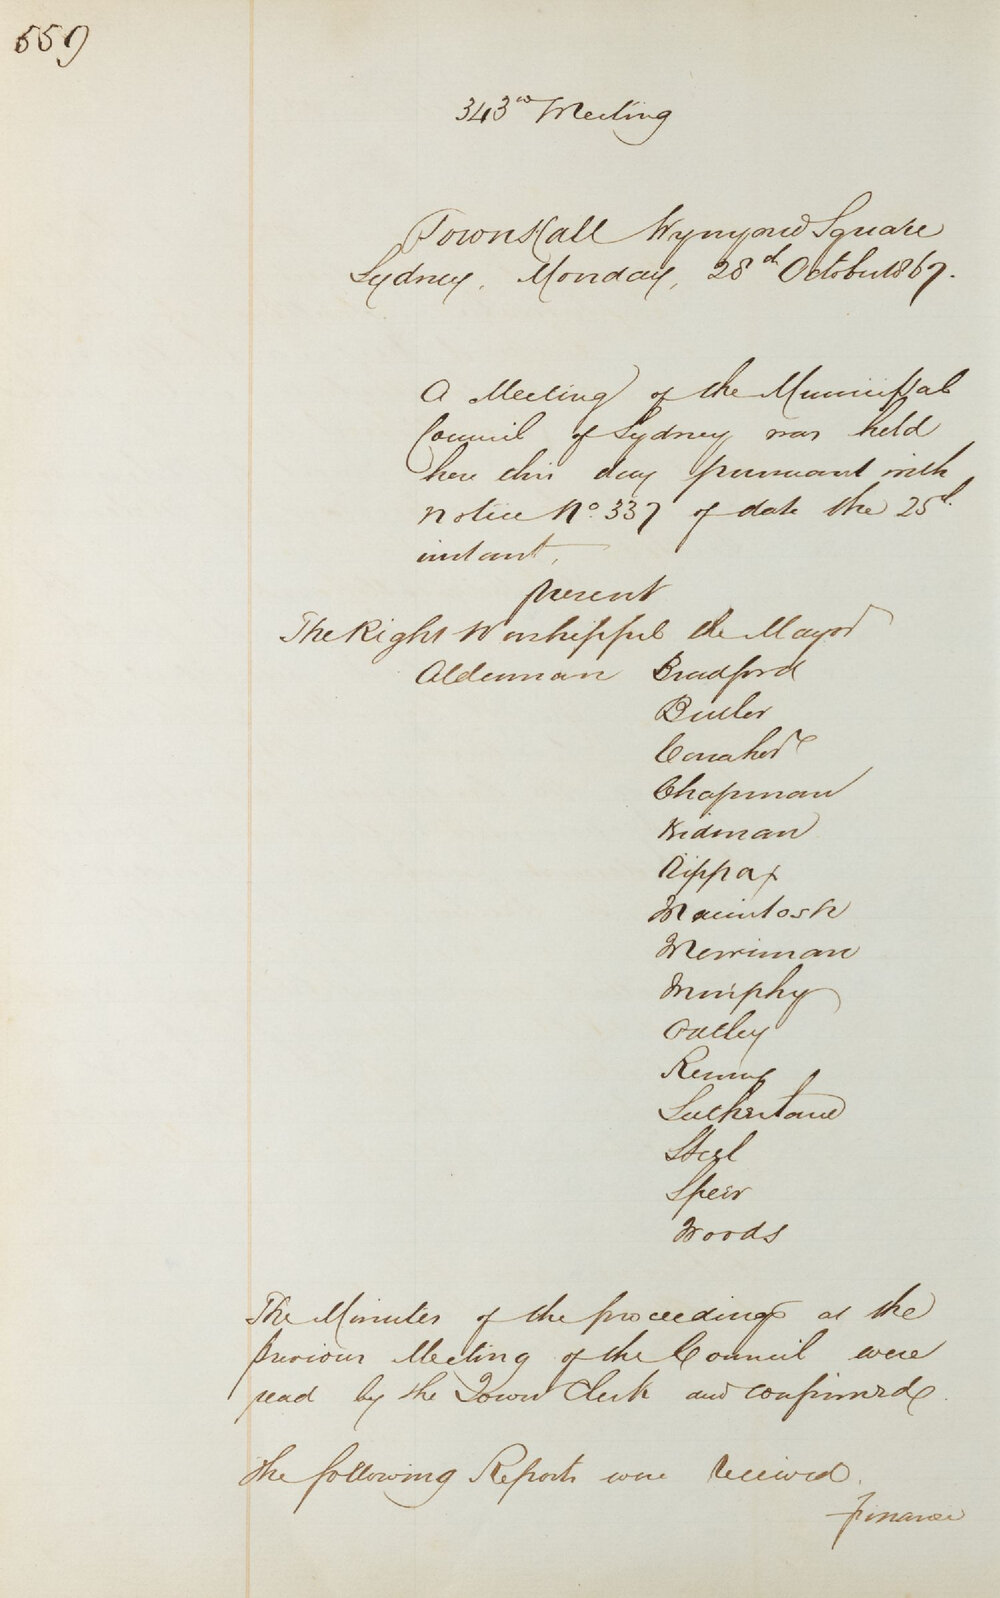 559
343rd Meeting
Town Hall Wynyard Square
Sydney, Monday, 28th October 1867.
A Meeting of the Municipal
Council of Sydney was held
here this day pursuant with
notice No. 337 of date the 25th
instant,
present
The Right Worshipful the Mayor
Alderman Bradford
Butler
Caraher
Chapman
Kidman
Kippax
Macintosh
Merriman
Murphy
Oatley
Renny
Sutherland
Steel
Speer
Woods
The Minutes of the proceedings at the
previous Meeting of the Council were
read by the Town Clerk and confirmed.
The following Reports were received.
Finance